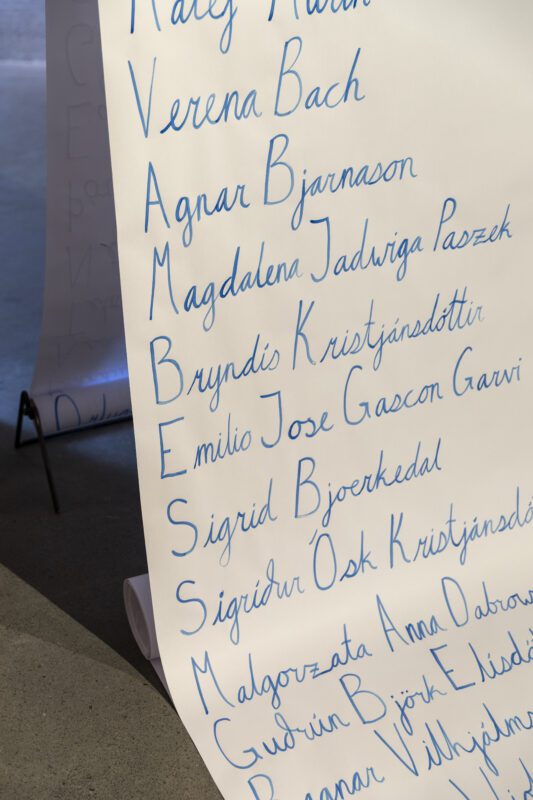 Verena Bach
Agnar Bjarnason
Magdalena Jadwiga Paszek
Bryndís Kristjánsdóttir
Emilio Jose Gascon Garvi
Sigrid Bjoerkedal
Sigríður Ósk Kristjánsdó
Malgorzata Anna Dabrow
Guðrún Björk Elísdó
Ragnar Vilhjálms